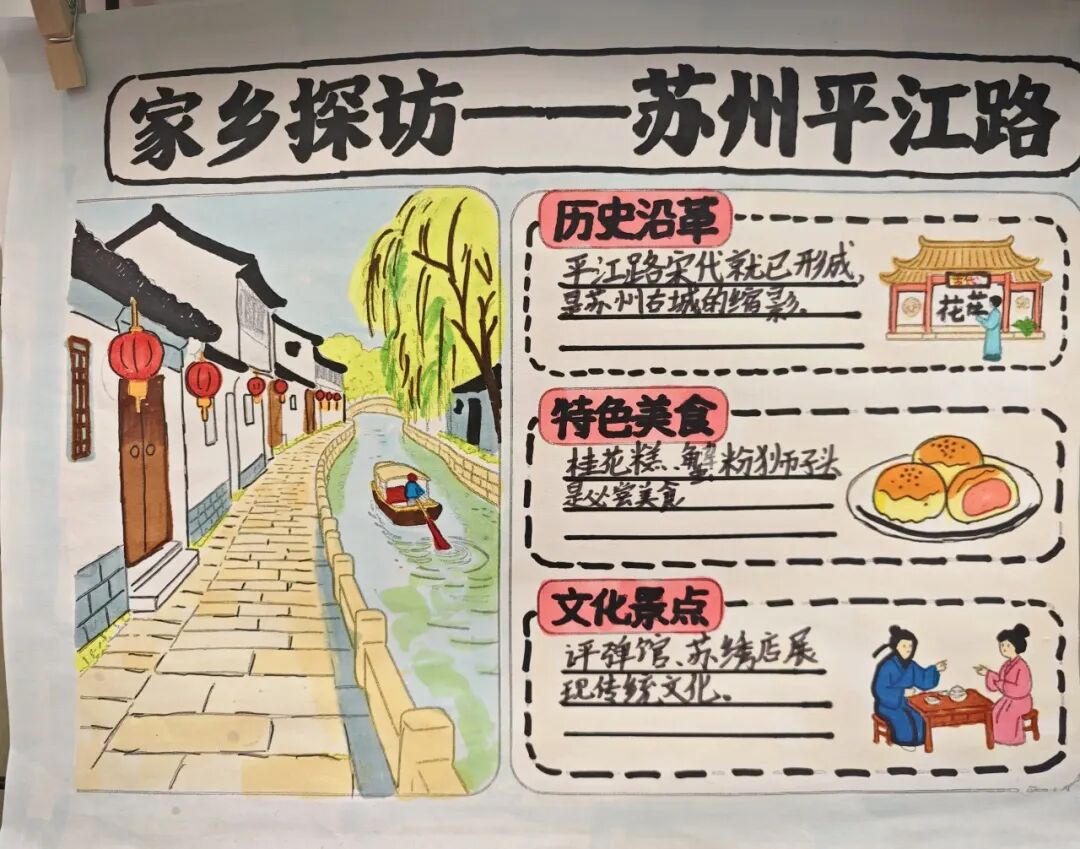 家乡探访——苏州平江路
历史沿革
平江路宋代就已形成,
是苏州古城的缩影。
花
特色美食
桂花糕、蟹粉狮子头
是必尝美食
文化景点
评弹馆、苏绣店展
现传统文化。